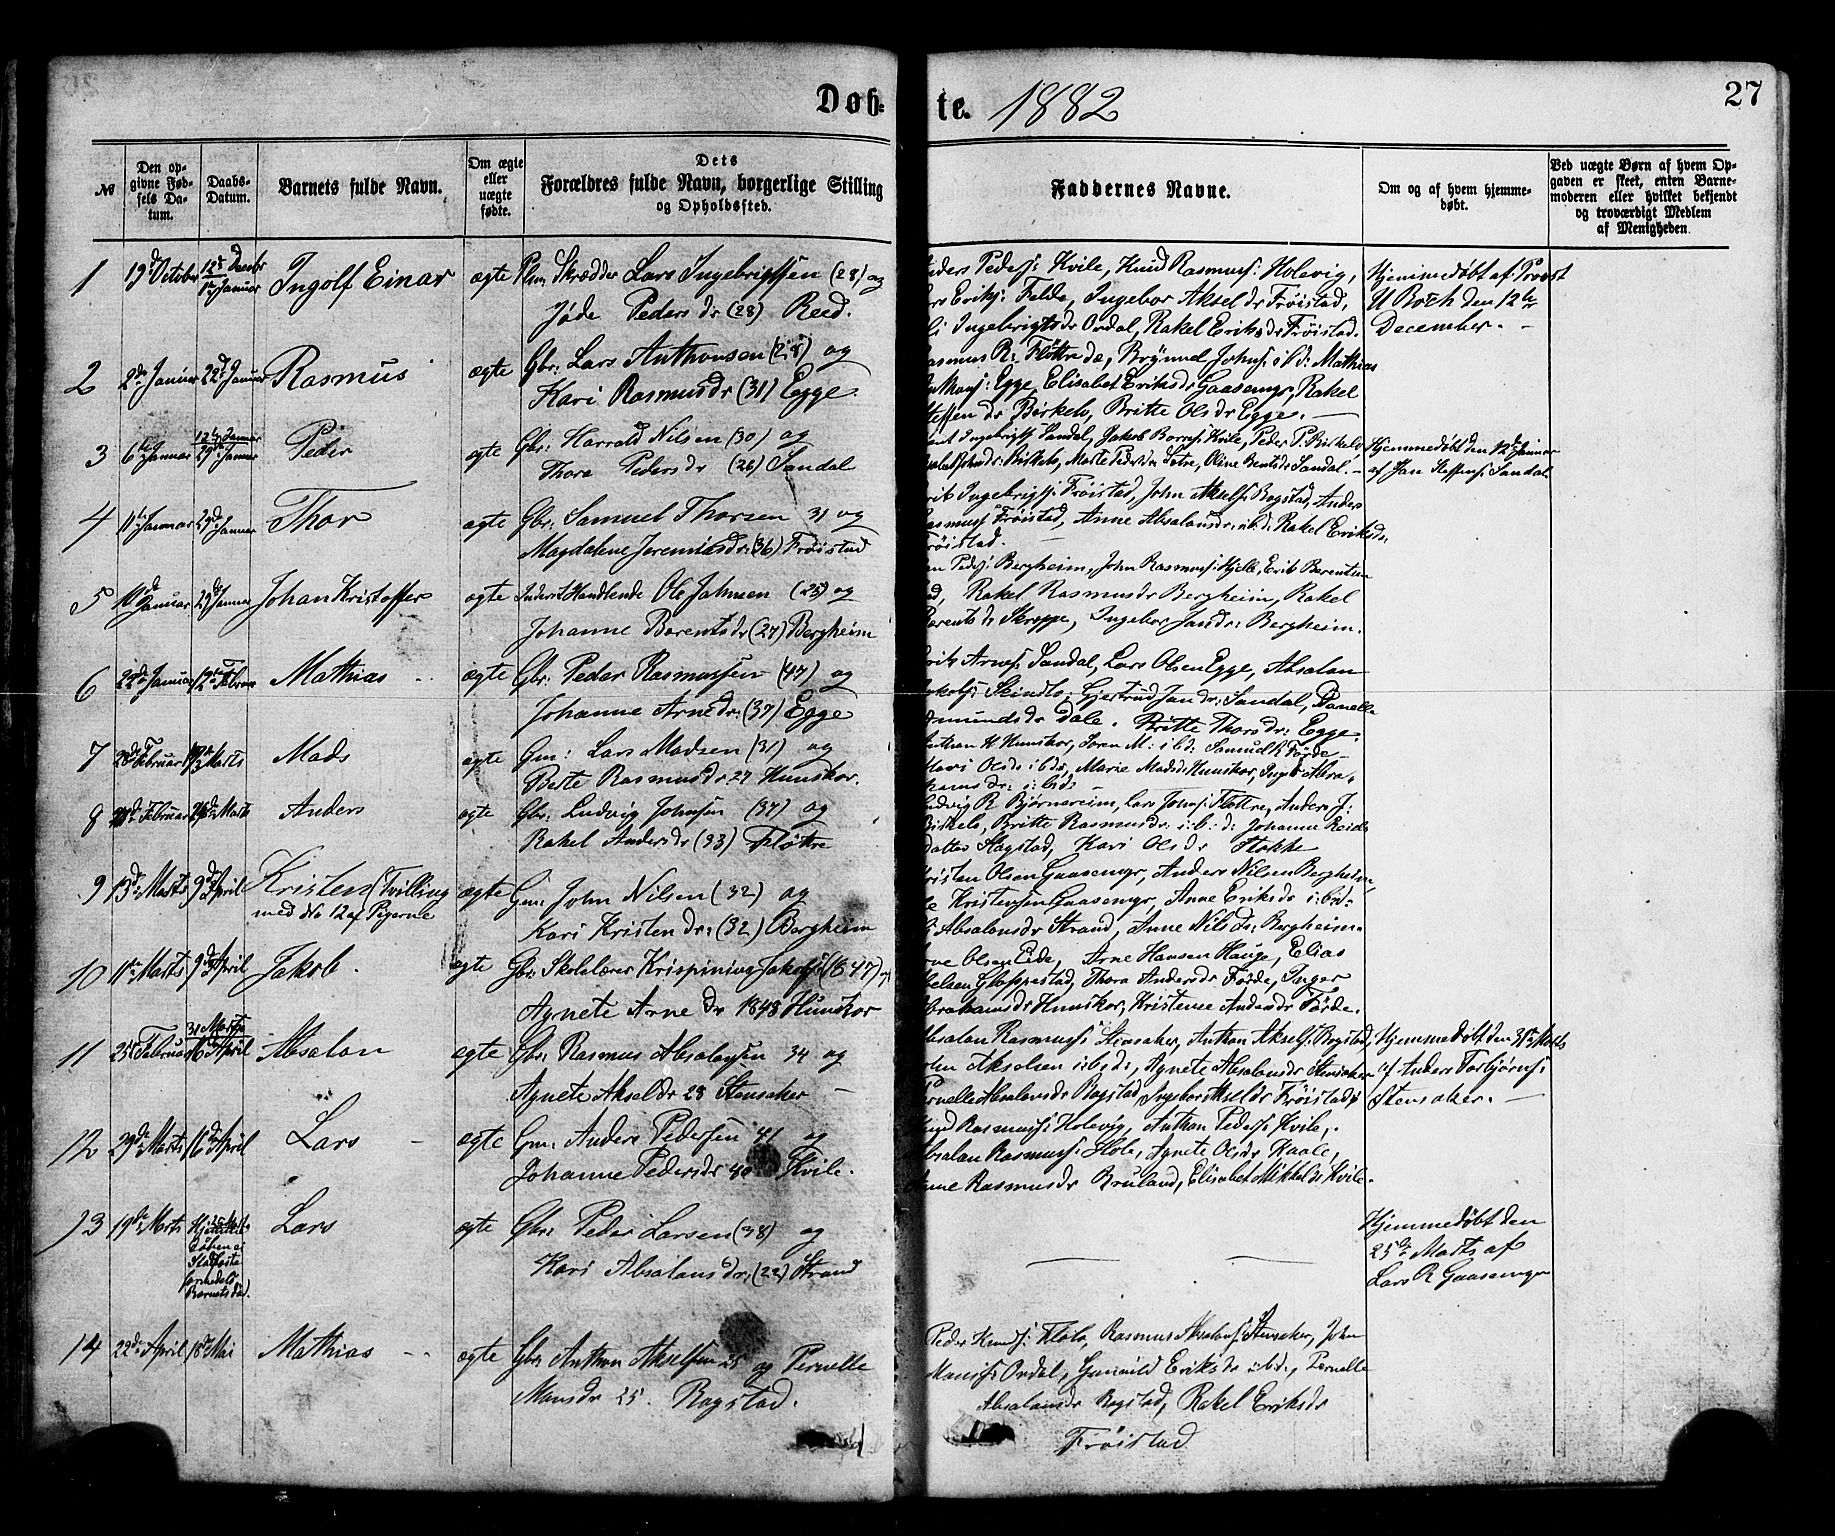 Døb-
te. 1882
27
№
Den opgivne Fødsels Datum.
Daabs-Datum.
Barnets fulde Navn.
Om ægte eller uægte fødte.
Dets Forældres fulde Navn, borgerlige Stilling og Opholdssted.
Faddernes Navne.
Om og af hvem hjemmedøbt.
Ved uægte Børn af hvem Opgaven er skeet, enten Barnemoderen eller hvilket bekjendt og troværdigt Medlem af Menigheden.
1 19d October 12te Decebr 1ste Januar Ingolf Einar ægte Skrædder Lars Ingebrigtsen (28) og
Jøde Pedersdr (28) Reed.
Anders Peders: Kvile, Knud Rasmuss: Holevig,
Lars Eriks: Felde, Ingebor Akseldr Frøistad,
Ingebrigtsdr Ordal, Rakel Eriksdr Frøistad.
Hjemmedøbt af Provst
Koch den 12te
December. -
2 2de Januar 22d Januar Rasmus ægte Gbr: Lars Anthonsen (28) og
Kari Rasmusdr (31) Egge.
Rasmus R: Fløttre, Brynnel Johns: ibd: Mathias
Anthons: Egge, Elisabet Eriksdr Gaasemyr, Rakel
Steffensdr Birkelo, Britte Olsdr Egge. -
3 6te Januar 12te Januar 29d Januar Peder ægte Gbr: Harrald Nilsen (30) og
Thora Pedersdr (26) Sandal
Ingebrigts: Sandal, Jakob Kvile, Peder P: Birkelo
Birkelo, Marte Pedersdr Sætre, Oline Bentsdr Sandal. -
Hjemmedøbt den 12d Januar
af Jan Steffens: Sandal
4 11te Januar 29d Januar Thor ægte Gbr: Samuel Thorsen 31 og
Magdalene Jeremiasdr: (36) Frøistad
Erik Ingebrigts: Frøistad, John Aksels: Bogstad, Anders
Rasmuss Frøistad, Anne Absalonsdr: ibd: Rakel Eriksdr:
Frøistad.
5 10d Januar 29d Januar Johan Kristoffer ægte Inderst Handlende Ole Johnsen (25) og
Johanne Berentsdr (27) Bergheim
Peders: Bergheim, John Rasmuss: Hjelle, Erik Berentsen
Rakel Rasmusdr Bergheim, Rakel
Berentsdr Skreppe, Ingebor Jansdr: Bergheim.
6 22d Januar 12te Februar Mathias ægte Gbr: Peder Rasmussen (47) og
Johanne Arnedr: (37) Egge
Erik Arnes: Sandal, Lars Olsen Egge, Absalon
Jakobs: Skindlo, Gjertrud Jansdr: Sandal, Pernelle
Amundsdr Dale. Britte Thorsdr: Egge.
7 28d Februar Marts Mads ægte Gm: Lars Madsen (31) og
Berte Rasmusdr 27 Hunskor.
Anthon H Hunskor, Søren M: ibd: Samuel R Førde
Kari Olsdr ibd, Marie Madsdr Hunskor, Inger Abra-
hamsdr: ibd:
8 Februar 26d Marts Anders ægte Gbr: Ludvig Johnsen (37) og
Rakel Andersdr (33) Fløttre
Ludvig R Bjørnereim, Lars Johns: Fløttre, Anders J:
Birkelo, Britte Rasmusdr: i:b:d: Johanne
datter Hagstad, Kari Olsdr Flokke
9 13d Marts 9d April Kristen (Tvilling ægte Gm: John Nilsen (32) og
med No 12 af Pigerne
Kari Kristendr: (32) Bergheim
Kristen Olsen Gaasemyr, Anders Nilsen Bergheim,
Kristensen Gaasemyr, Anne Eriksdr ibd.
Absalonsdr Strand, Anne Nilsdr: Bergheim.
10 11te Marts 9d April Jakob. ægte Gbr: Skolelærer Krispinius Jakobs: (1847) og
Agnete Arnedr 1848 Hunskor
Arne Olsen Eide, Arne Hansen Hauge, Elias
Gloppestad, Thora Andersdr Førde, Inger
Abrahamsdr Hunskor, Kristense Andersdr Førde.
11 25d Februar 31 Marts 16d April Absalon ægte Gbr: Rasmus Absalonsen 34 og
Agnete Akseldr 28 Stensaker -
Absalon Rasmuss: Stensaker, Anthon Aksels: Bogstad,
John Akselsen ibd:, Agnete Absalonsdr Stensaker
Pernelle Absalonsdr Bogstad, Ingebor Akseldr Frøistad
Hjemmedøbt den 31te Marts
af Anders Torbjørns:
Stensaker. -
12 29d Marts 16d April Lars - ægte Gm: Anders Pedersen 41 og
Johanne Pedersdr 40 Kvile.
Knud Rasmuss: Holevig, Anthon Peders: Kvile,
Absalon Rasmuss: Hole, Agnete Olsdr Kaale,
Anne Rasmusdr Bruland, Elisabet Mikkelsdr Kvile.
13 19de Marts Lars ægte Gbr: Peder Larsen (38) og
Kari Absalonsdr: (22) Strand
Hjemmedøbt den
25de Marts af
Lars R Gaasemyr
14 22de April 18d Mai Mathias - - ægte Gbr: Anthon Akselsen 25 og Pernelle
Monsdr 25. Bogstad.
Peder Knuds: Flolo, Rasmus Absalons: Stensaker, John
Monss Ordal, Gunnild Eriksdr ibd:, Pernelle
Absalonsdr Bogstad, Rakel Eriksdr
Frøistad